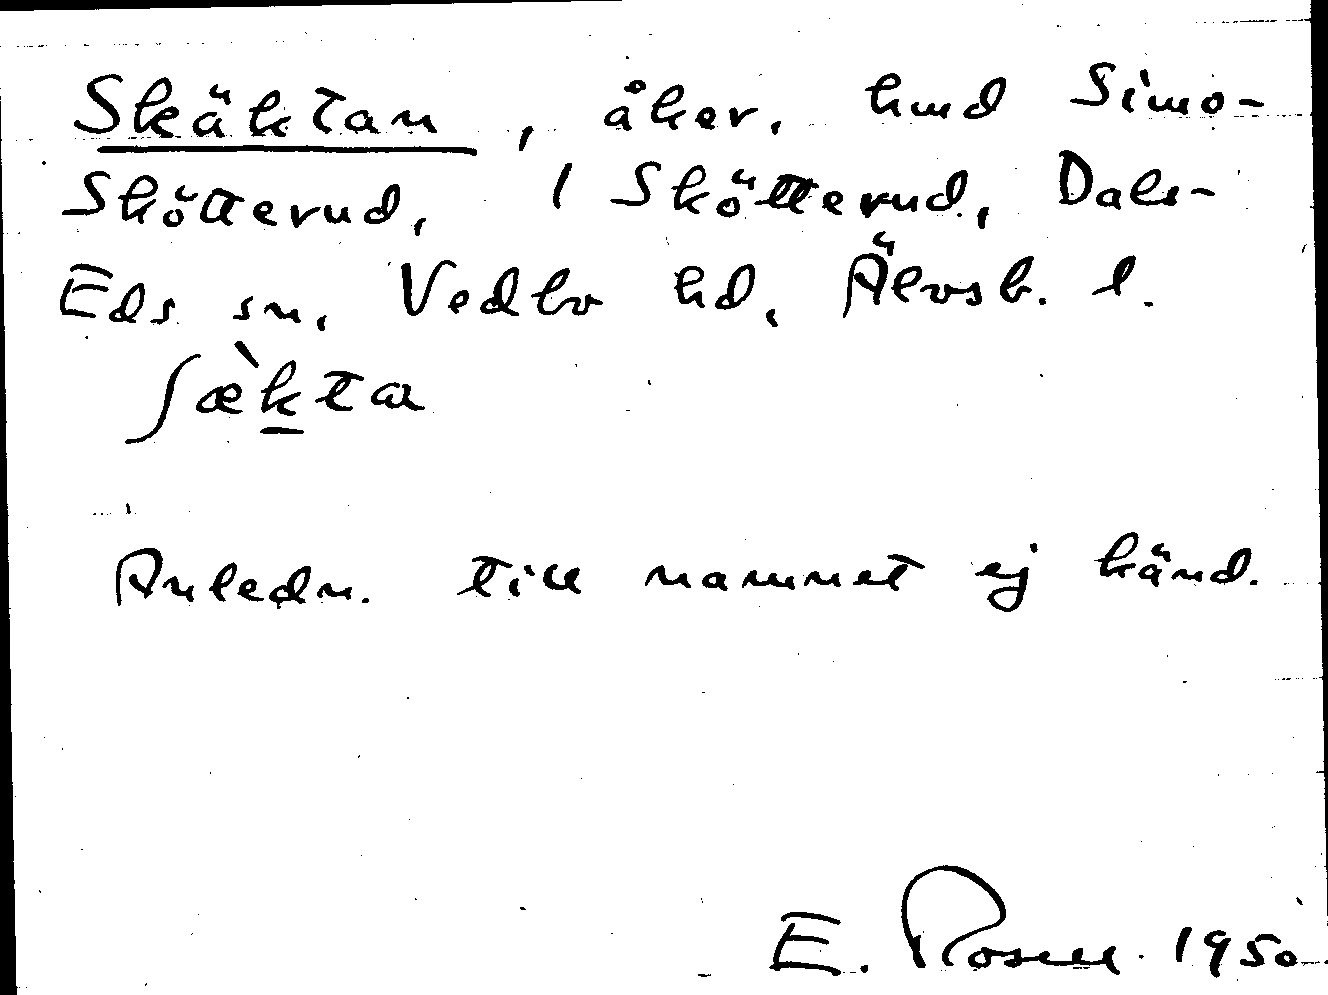 Skäktan, åker, hmd Simo-
Skötterud, 1 Skötterud, Dals-
Eds sn, Vedbo hd, Älvsb. l.
ʃæ̀kta
Anledn. till namnet ej känd.
E. Rosell 1950